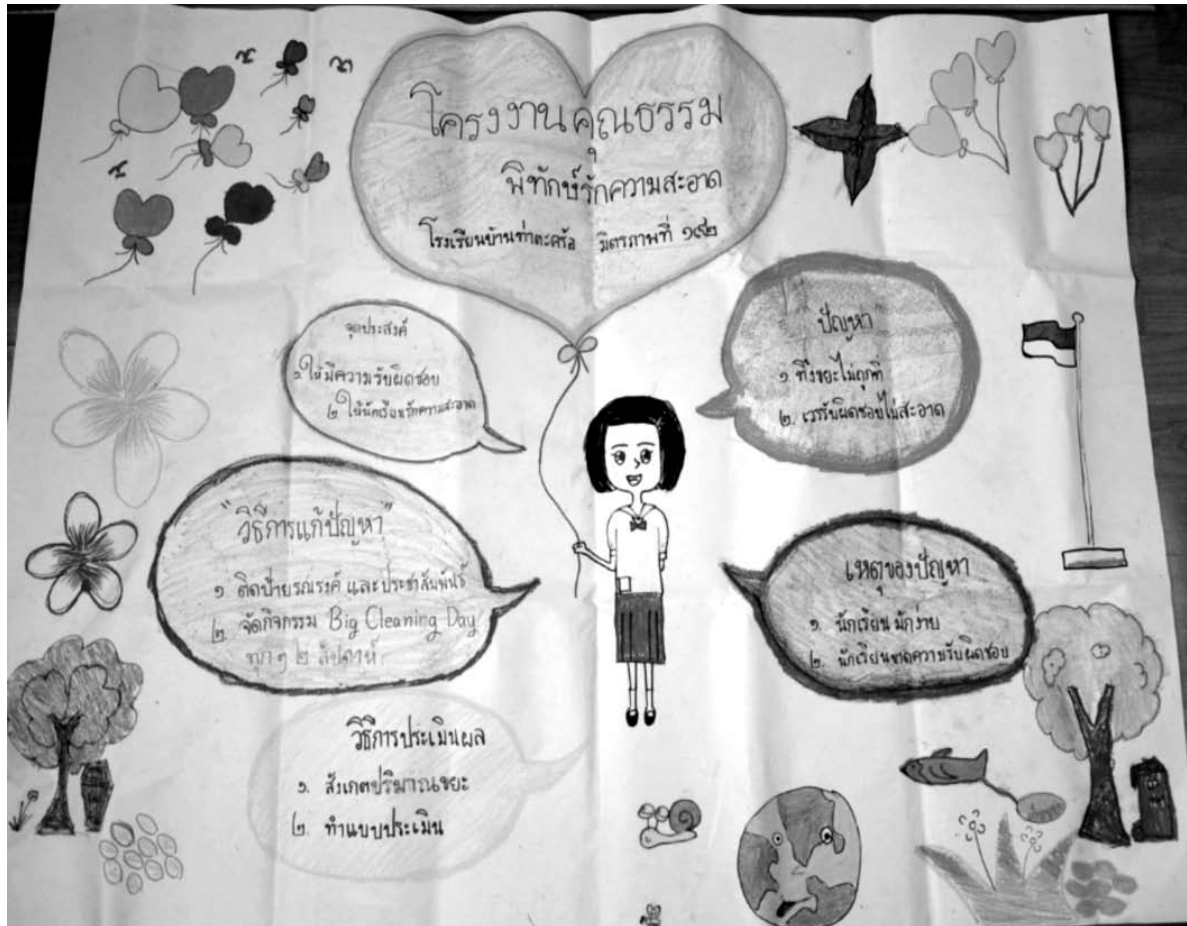 โครงงานคุณธรรม
พิทักษ์รักความสะอาด
โรงเรียนบ้านท่าตะคร้อ มิตรภาพที่ ๑๙๒
จุดประสงค์
๑.ให้มีความรับผิดชอบ
๒.ให้นักเรียนรักความสะอาด
ปัญหา
๑. ทิ้งขยะไม่ถูกที่
๒. เวรรับผิดชอบไม่สะอาด
"วิธีการแก้ปัญหา"
๑ ติดป้ายรณรงค์ และประชาสัมพันธ์
๒. จัดกิจกรรม Big Cleaning Day
ทุก ๆ ๒ สัปดาห์
เหตุของปัญหา
๑. นักเรียนมักง่าย
๒. นักเรียนขาดความรับผิดชอบ
วิธีการประเมินผล
๑. สังเกตปริมาณขยะ
๒. ทำแบบประเมิน